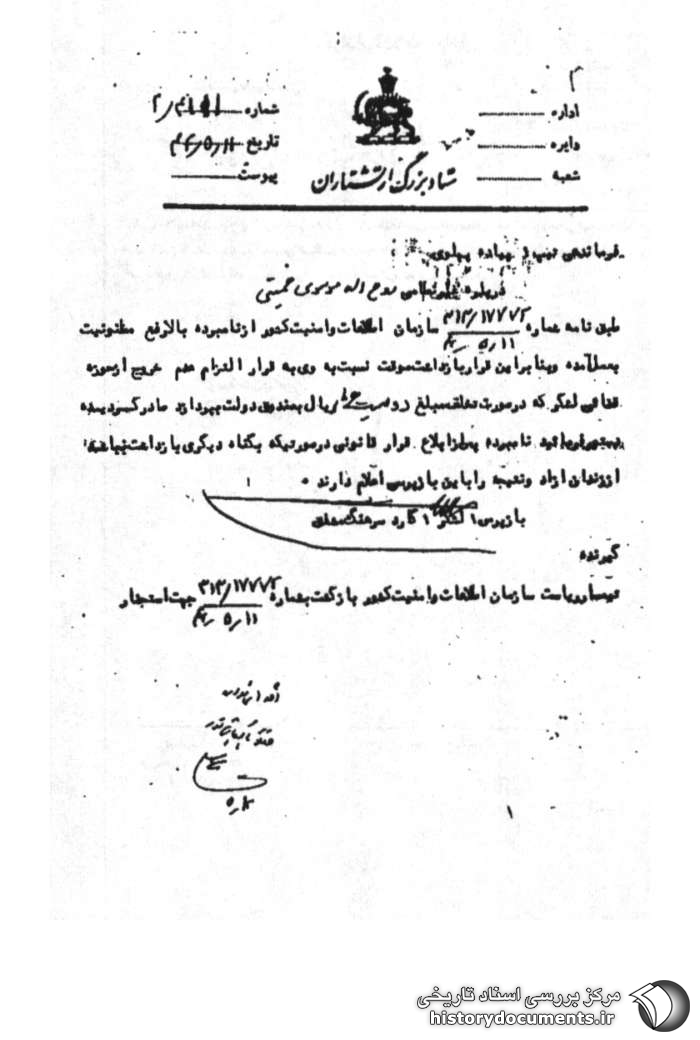 اداره
دایره
شعبه
شماره
تاریخ ۴۲/۵/۱۱
پیوست
ستاد بزرگ ارتشتاران
فرمانده‌ی تیپ ۲ پیاده پهلوی
درباره غیرنظامی روح اله موسوی خمینی
طبق نامه شماره ۳۱۲/۱۷۷۷۲ سازمان اطلاعات و امنیت کشور از نامبرده بالا رفع مظنونیت
۴۲/۵/۱۱
بعمل آمده و بنا بر این قرار بازداشت موقت نسبت به وی به قرار التزام عدم خروج از حوزه
قضائی لشگر که در صورت تخلف مبلغ دویست ریال بصندوق دولت بپردازد صادر گردیده
نامبرده پس از ابلاغ قرار قانونی در صورتیکه بگناه دیگری بازداشت نباشد
از زندان ازاد و نتیجه را باین بازپرسی اعلام دارند ۰
بازپرس ۱ لشگر ۱ گارد سرهنگ
گیرنده
تیمسار ریاست سازمان اطلاعات و امنیت کشور بازگشت بشماره ۳۱۲/۱۷۷۷۲ جهت استحضار
۴۲/۵/۱۱
۱
مرکز بررسی اسناد تاریخی
historydocuments.ir